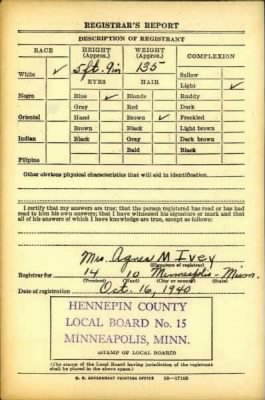 REGISTRAR'S REPORT
DESCRIPTION OF REGISTRANT
RACE HEIGHT (Approx.) WEIGHT (Approx.) COMPLEXION
White ✓ 5 ft. 9 in 135 Sallow
EYES HAIR Light ✓
Negro Blue ✓ Blonde Ruddy
Gray Red Dark
Oriental Hazel Brown ✓ Freckled
Brown Black Light brown
Indian Black Gray Dark brown
Bald Black
Filipino
Other obvious physical characteristics that will aid in identification
I certify that my answers are true; that the person registered has read or has had
read to him his own answers; that I have witnessed his signature or mark and that
all of his answers of which I have knowledge are true, except as follows:
Mrs. Agnes M Ivey
(Signature of registrar)
Registrar for 14 10 Minneapolis - Minn.
(Precinct) (Ward) (City or county) (State)
Date of registration Oct. 16, 1940
HENNEPIN COUNTY
LOCAL BOARD No. 15
MINNEAPOLIS, MINN.
(STAMP OF LOCAL BOARD)
(The stamp of the Local Board having jurisdiction of the registrant
shall be placed in the above space.)
U. S. GOVERNMENT PRINTING OFFICE 16-17105